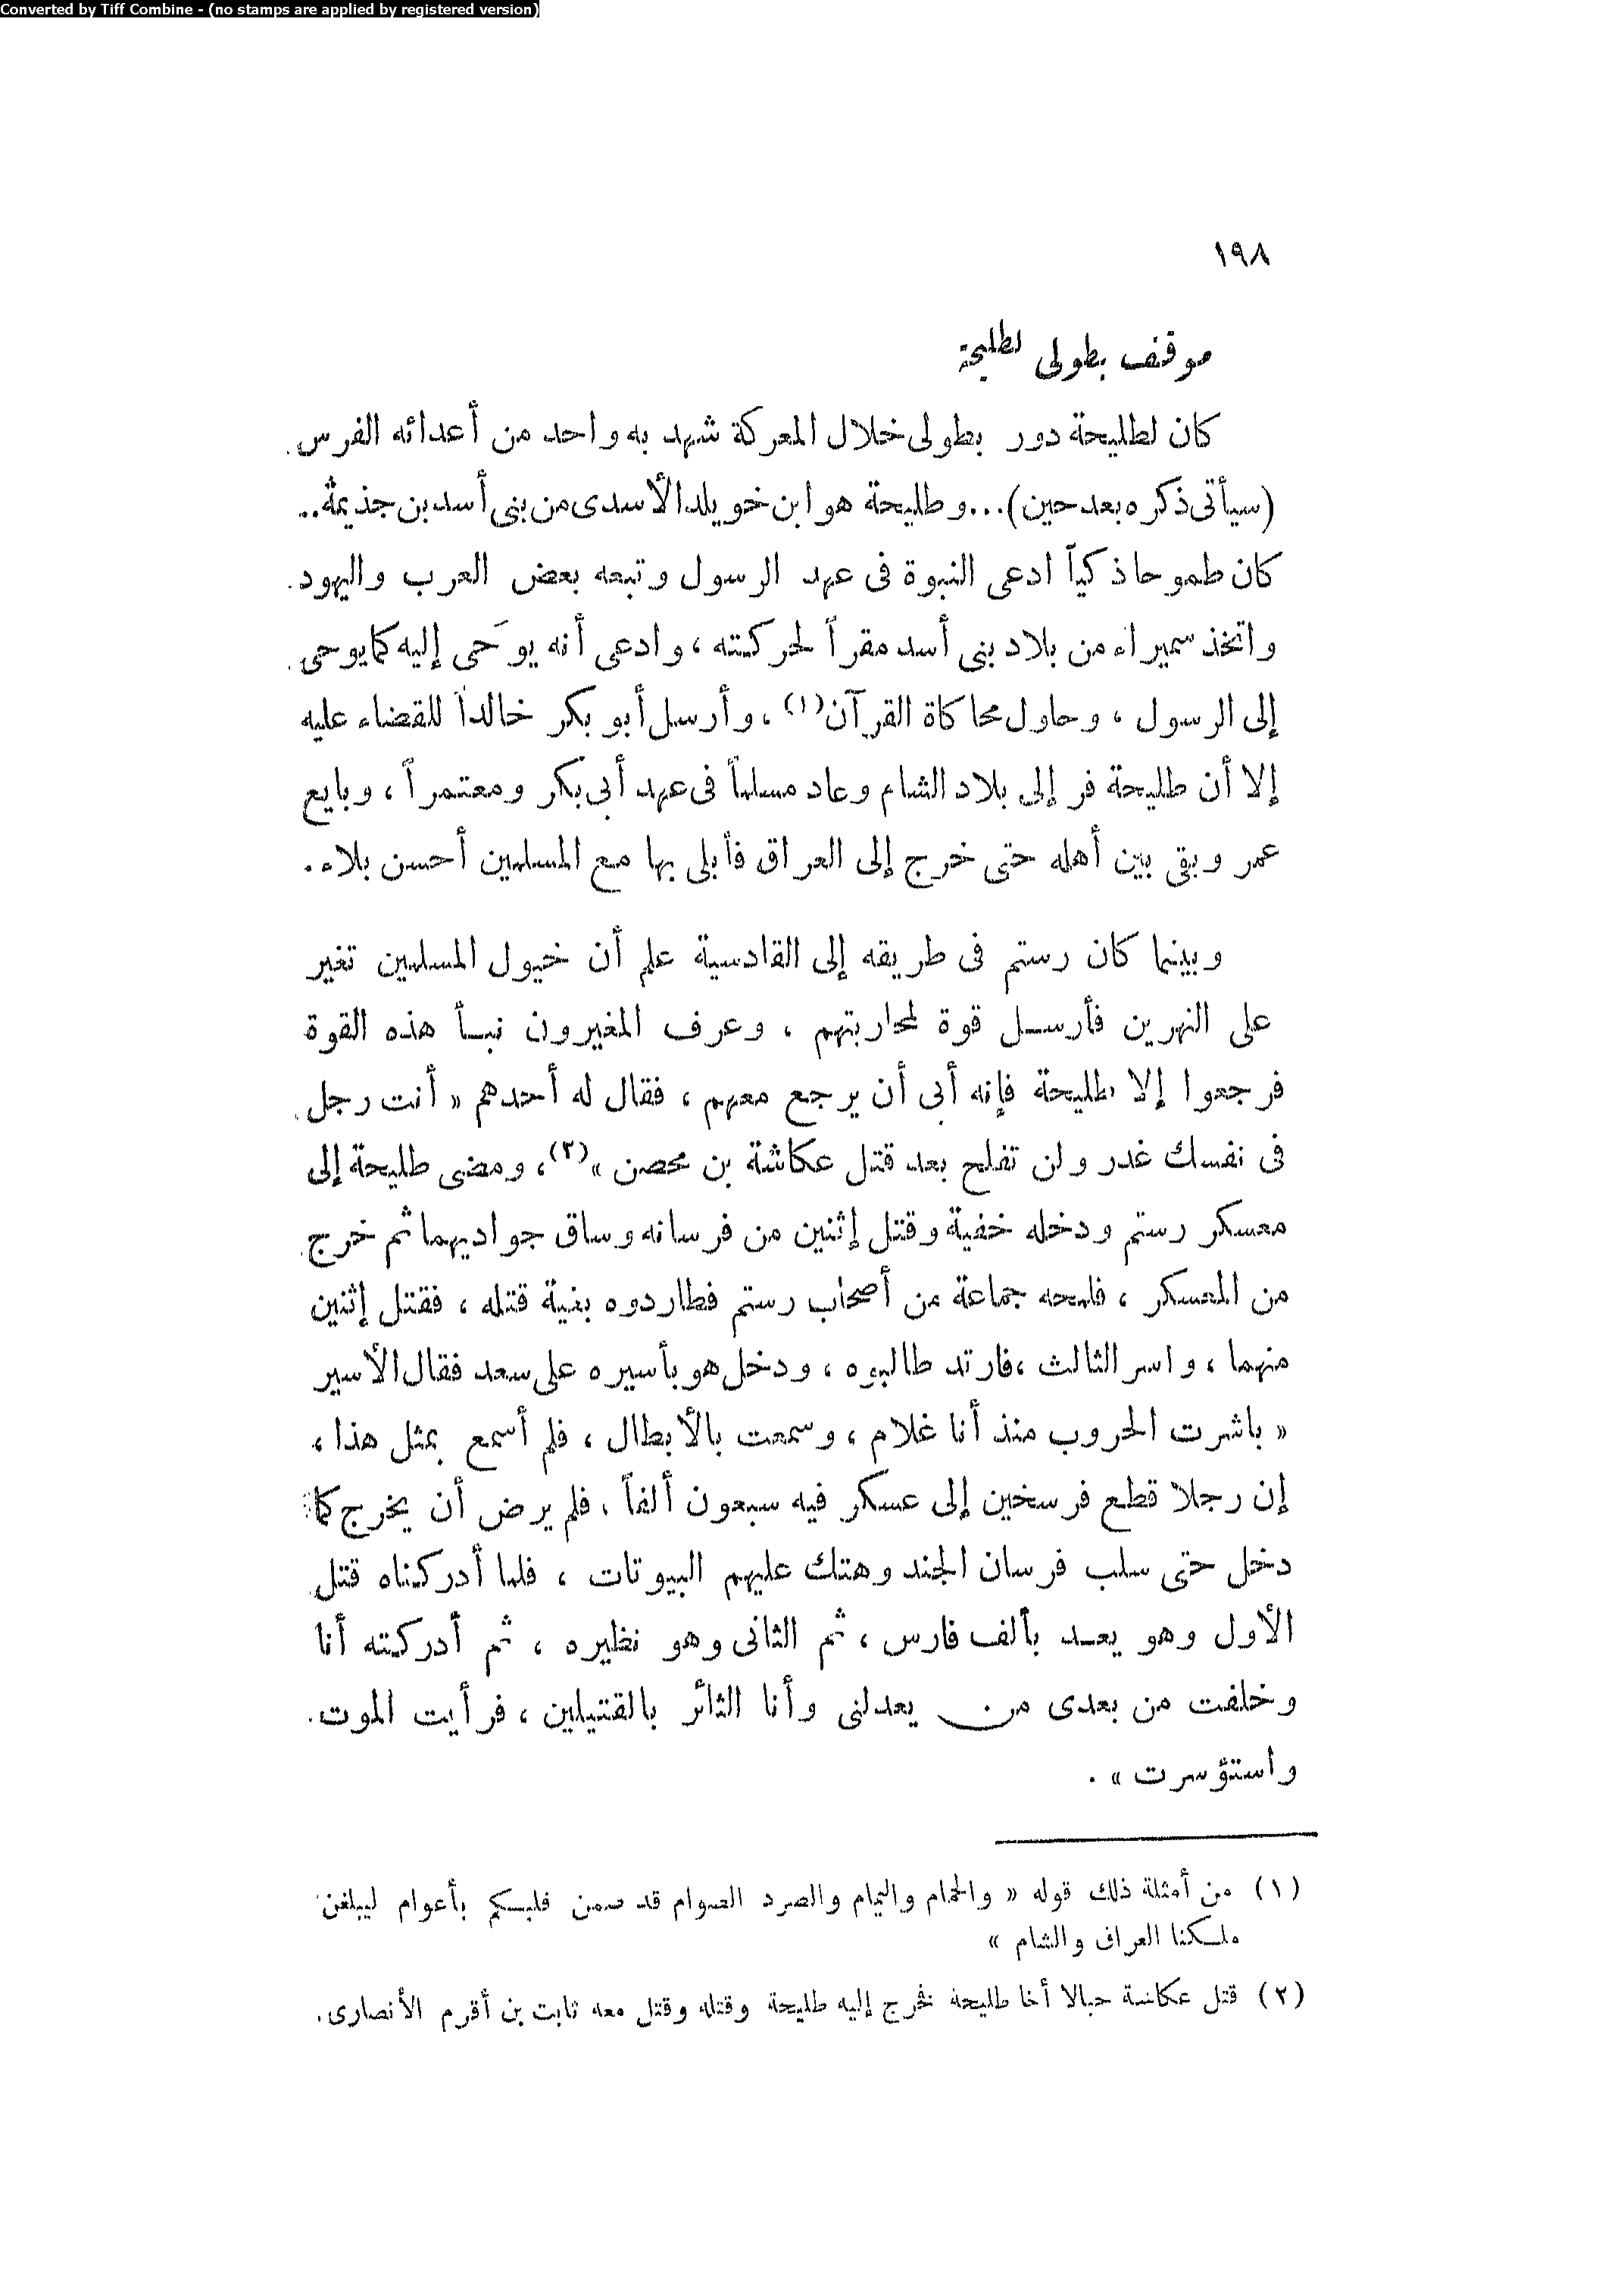 Converted by Tiff Combine - (no stamps are applied by registered version)
١٩٨
موقف بطولى لطليحة
كان لطليحة دور بطولى خلال المعركة شهد به واحد من أعدائه الفرس
(سيأتى ذكره بعد حين)... وطليحة هو ابن خويلد الأسدى من بنى أسد بن جذيمة..
كان طموحا ذكياً ادعى النبوة فى عهد الرسول وتبعه بعض العرب واليهود.
واتخذ سميراء من بلاد بنى أسد مقراً لحركته ، وادعى أنه يوَحى إليه كما يوحى
إلى الرسول ، وحاول محاكاة القرآن(١) ، وأرسل أبو بكر خالداً للقضاء عليه
إلا أن طليحة فر إلى بلاد الشام وعاد مسلماً فى عهد أبى بكر ومعتمراً ، وبايع
عمر وبقى بين أهله حتى خرج إلى العراق فأبلى بها مع المسلمين أحسن بلاء.
وبينما كان رستم فى طريقه إلى القادسية علم أن خيول المسلمين تغير
على النهرين فأرسل قوة لمحاربتهم ، وعرف المغيرون نبأ هذه القوة
فرجعوا إلا طليحة فإنه أبى أن يرجع معهم ، فقال له أحدهم « أنت رجل
فى نفسك غدر ولن تفلح بعد قتل عكاشة بن محصن »(٢)، ومضى طليحة إلى
معسكر رستم ودخله خفية وقتل إثنين من فرسانه وساق جواديهما ثم خرج
من المعسكر ، فلمحه جماعة من أصحاب رستم فطاردوه بغية قتله ، فقتل إثنين
منهما ، واسر الثالث ،فارتد طالبوه ، ودخل هو بأسيره على سعد فقال الأسير
« باشرت الحروب منذ أنا غلام ، وسمعت بالأبطال ، فلم أسمع بمثل هذا ،
إن رجلا قطع فرسخين إلى عسكر فيه سبعون ألفاً ، فلم يرض أن يخرج كما
دخل حتى سلب فرسان الجند وهتك عليهم البيوتات ، فلما أدركناه قتل
الأول وهو يعد بألف فارس ، ثم الثانى وهو نظيره ، ثم أدركته أنا
وخلفت من بعدى من يعدلنى وأنا الثائر بالقتيلين ، فرأيت الموت
واستؤسرت » .
(١) من أمثلة ذلك قوله « والحمام واليمام والصرد الصوام قد صمن قبلكم بأعوام ليبلغن
ملكنا العراق والشام »
(٢) قتل عكاشة حبالا أخا طليحة فخرج إليه طليحة وقتله وقتل معه ثابت بن أقرم الأنصارى.